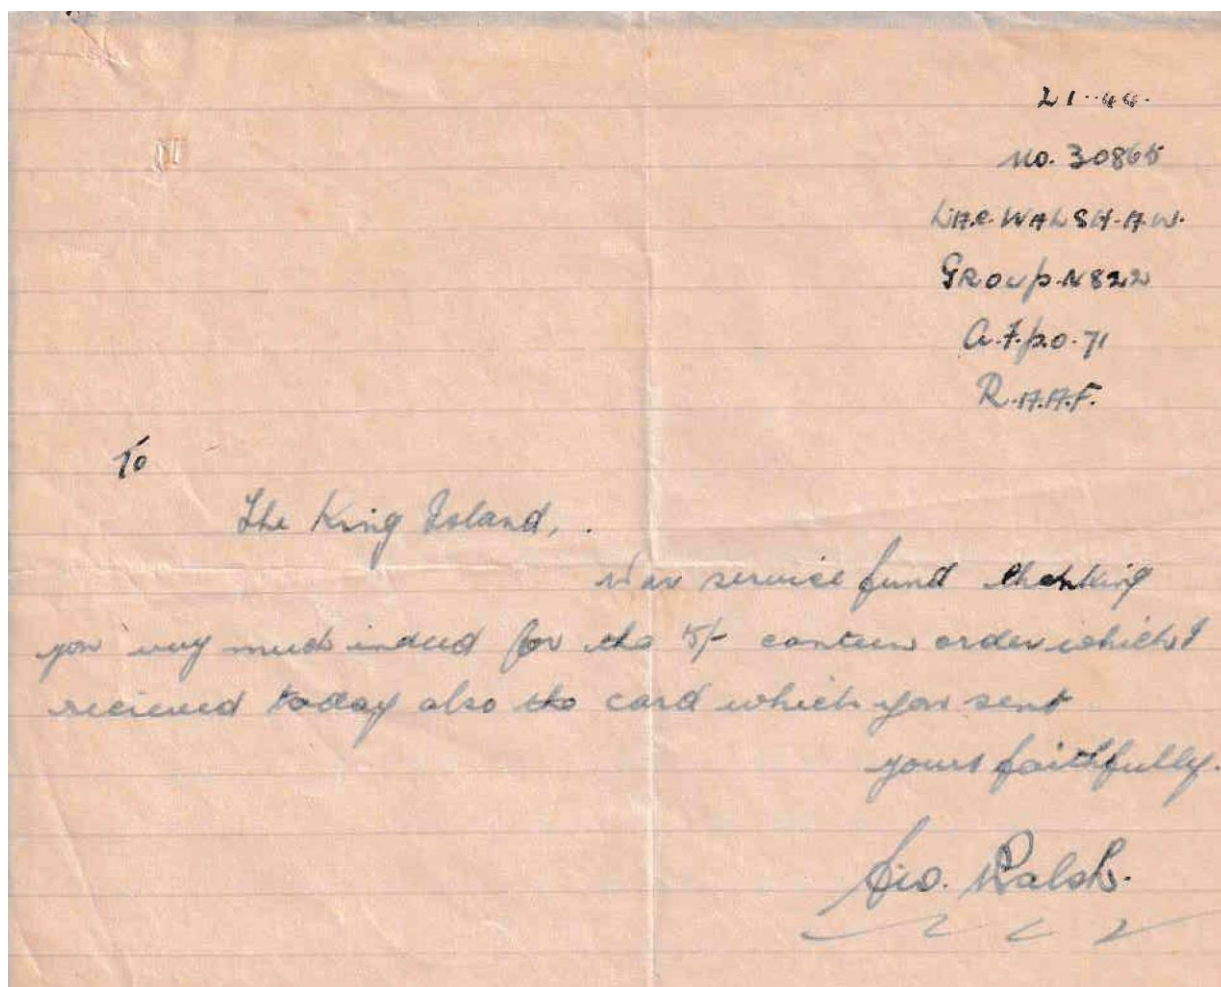 21..44.
No. 30865
L.A.C. WALSH. A.W.
GROUP. N822
A.F.P.O. 71
R.A.A.F.
To
The King Island, .
War service fund thanking
you very much indeed for the 5/- canteen order which I
recieved today also the card which you sent
yours faithfully.
Geo. Walsh.